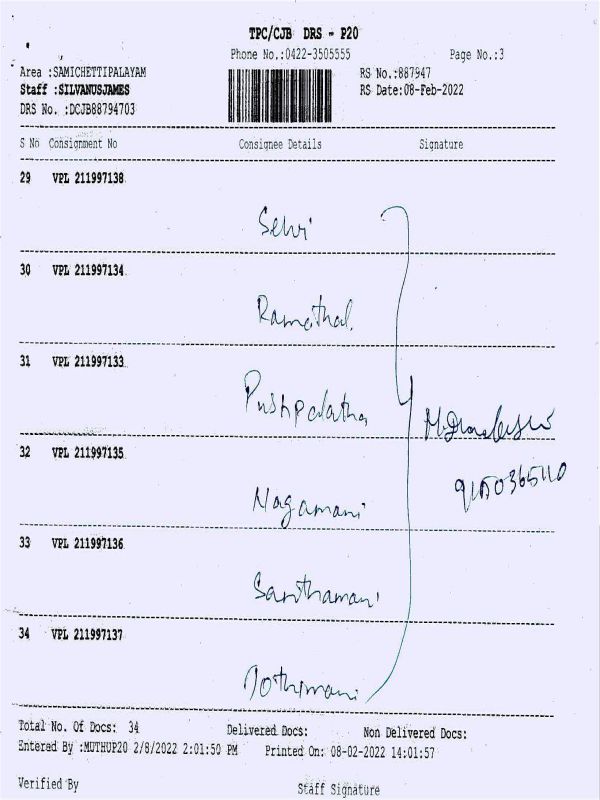 TPC/CJB DRS - P20
Phone No.:0422-3505555 Page No.:3
Area :SAMICHETTIPALAYAM RS No.:887947
Staff :SILVANUSJAMES RS Date:08-Feb-2022
DRS No. :DCJB88794703
S No Consignment No Consignee Details Signature
29 VPL 211997138
Selvi
30 VPL 211997134
Ramathal.
31 VPL 211997133
Pushpalatha
32 VPL 211997135
Nagamani
9150365110
33 VPL 211997136
Santhamani
34 VPL 211997137
Jothimani
Total No. Of Docs: 34 Delivered Docs: Non Delivered Docs:
Entered By :MUTHUP20 2/8/2022 2:01:50 PM Printed On: 08-02-2022 14:01:57
Verified By Staff Signature